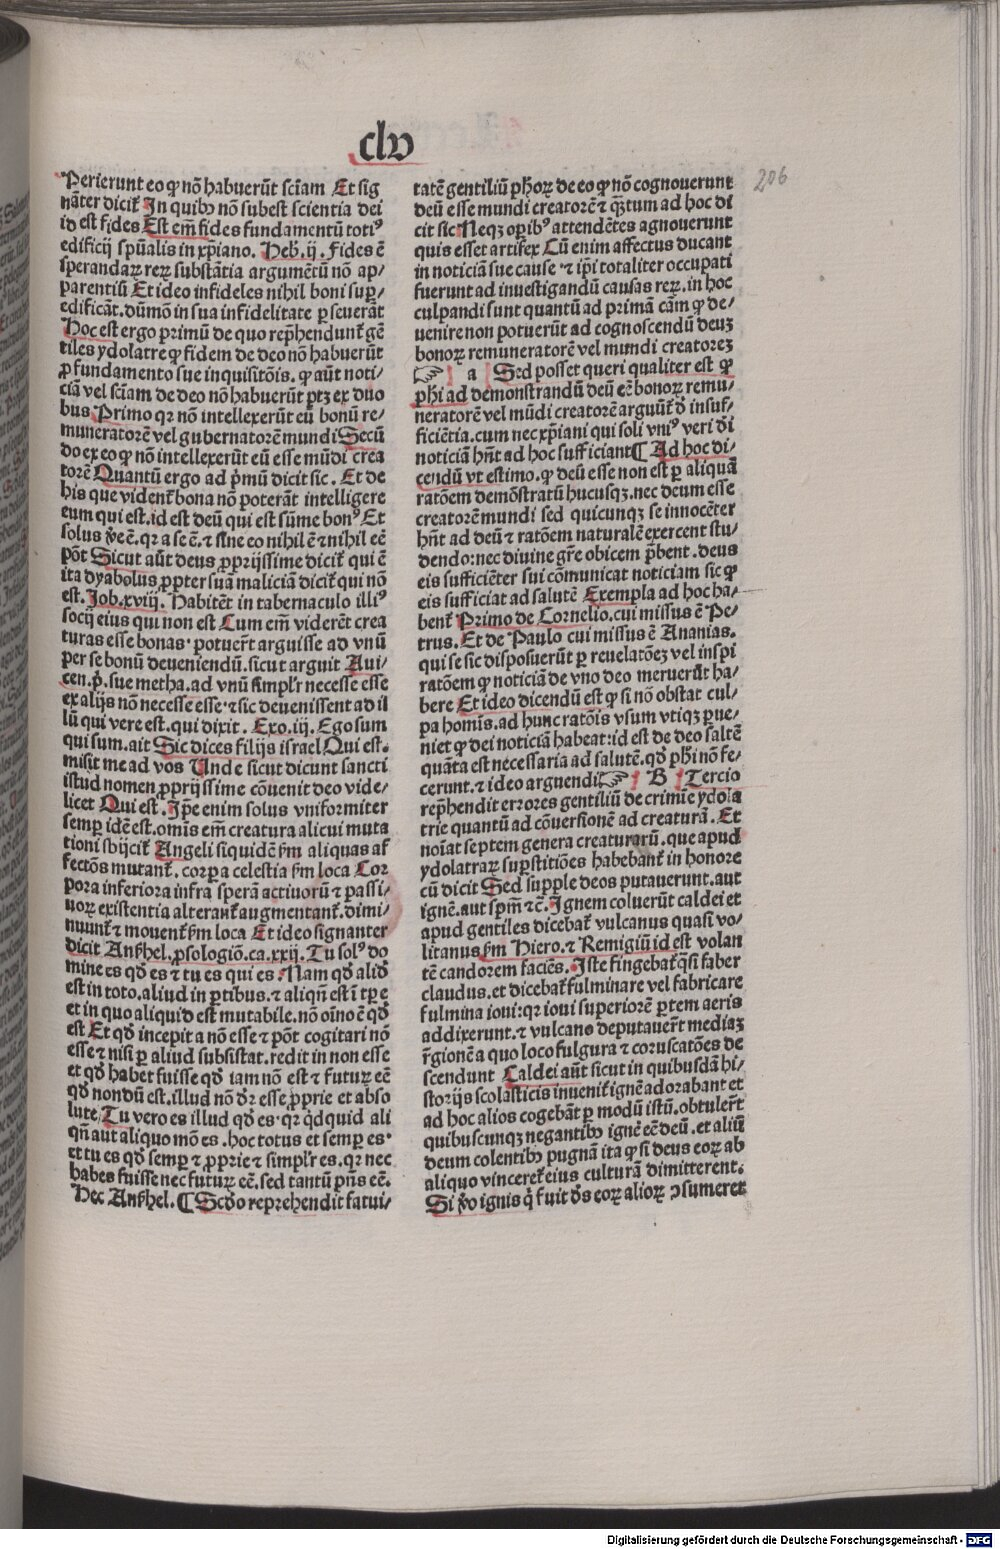 clv
206
Perierunt eo ꝙ nō habuerūt sciam Et sig
nāter dicit᷑ In quibꝰ nō subest scientia dei
id est fides Est em̄ fides fundamentū totiꝰ
edificij spūalis in xp̄iano. Heb̓.ij. Fides ē
sperandaꝝ reꝝ substātia argumētū nō ap⸗
parentiū Et ideo infideles nihil boni suꝑ⸗
edificāt. dūmō in sua infidelitate ꝑseuerāt
Hoc est ergo primū de quo rep̄hendunt᷑ gē
tiles ydolatre ꝙ fidem de deo nō habuerūt
ꝓ fundamento sue inquisitōis. ꝙ aūt noti⸗
ciā vel sciam de deo nō habuerūt ptꝫ ex duo
bus Primo qꝛ nō intellexerūt eū bonū re⸗
muneratorē vel gubernatorē mundi Secū
do ex eo ꝙ nō intellexerūt eū esse mūdi crea
torē Quantū ergo ad p̓mū dicit sic. Et de
his que vident᷑ bona nō poterāt intelligere
eum qui est. id est deū qui est sūme bonꝰ Et
solus v̓e ē. qꝛ a se ē. ⁊ sine eo nihil ē ⁊ nihil eē
pōt Sicut aūt deus ꝓprijssime dicit᷑ qui ē
ita dyabolus ꝓpter suā maliciā dicit᷑ qui nō
est. Job.xviij. Habitēt in tabernaculo illiꝰ
socij eius qui non est Cum em̄ viderēt crea
turas esse bonas. potuer̄t arguisse ad vnū
per se bonū deueniendū. sicut arguit Aui⸗
cen.p̓. sue metha. ad vnū simpl̓r necesse esse
ex alijs nō necesse esse. ⁊ sic deuenissent ad il
lū qui vere est. qui dixit. Exo.iij. Ego sum
qui sum. ait Sic dices filijs israel Qui est.
misit me ad vos Unde sicut dicunt sancti
istud nomen ꝓprijssime cōuenit deo vide⸗
licet Qui est. Ip̄e enim solus vniformiter
semꝑ idē est. omīs em̄ creatura alicui muta
tioni sbijcit᷑ Angeli siquidē ẜm aliquas af
fectōs mutant᷑. corpa celestia ẜm loca Cor
pora inferiora infra sperā actiuorū ⁊ passi⸗
uorꝝ existentia alterant᷑ augmentant᷑. dimi⸗
nuunt᷑ ⁊ mouent᷑ ẜm loca Et ideo signanter
dicit Anshel. ꝓsologiō.ca.xxij. Tu solꝰ do
mine es qd̓ es ⁊ tu es qui es. Nam qd̓ aliud
est in toto. aliud in ꝑtibus. ⁊ aliqn̄ est ī tpe
et in quo aliquid est mutabile. nō oīno ē qd̓
est Et qd̓ incepit a nō esse ⁊ pōt cogitari nō
esse ⁊ nisi ꝑ aliud subsistat. redit in non esse
et qd̓ habet fuisse qd̓ iam nō est ⁊ futuꝝ eē
qd̓ nondū est. illud nō d̓r esse ꝓprie et abso
lute. Tu vero es illud qd̓ es. qꝛ q̓dquid ali
qn̄ aut aliquo mō es. hoc totus et semꝑ es.
et tu es qd̓ semꝑ ⁊ ꝓprie ⁊ simpl̓r es. qꝛ nec
habes fuisse nec futuꝝ eē. sed tantū pn̄s eē.
Hec Anshel. ¶ Scd̓o reprehendit fatui⸗
tatē gentiliū ph̓oꝝ de eo ꝙ nō cognouerunt
deū esse mundi creatorē ⁊ qꝫtum ad hoc di
cit sic Neqꝫ oꝑibꝰ attendētes agnouerunt
quis esset artifex Cū enim affectus ducant
in noticiā sue cause. ⁊ ip̄i totaliter occupati
fuerunt ad inuestigandū causas reꝝ. in hoc
culpandi sunt quantū ad primā cām ꝙ de⸗
uenire non potuerūt ad cognoscendū deuꝫ
bonoꝝ remuneratorē vel mundi creatoreꝫ
☞ a Sed posset queri qualiter est ꝙ
ph̓i ad demonstrandū deū eē bonoꝝ remu⸗
neratorē vel mūdi creatorē arguūt᷑ d̓ insuf⸗
ficiētia. cum nec xp̄iani qui soli vniꝰ veri di
noticiā hn̄t ad hoc sufficiant ¶ Ad hoc di⸗
cendū vt estimo. ꝙ deū esse non est ꝑ aliquā
ratōem demōstratū hucusqꝫ. nec deum esse
creatorē mundi sed quicunqꝫ se innocēter
hn̄t ad deū ⁊ ratōem naturalē exercent stu⸗
dendo: nec diuine gr̄e obicem p̄bent. deus
eis sufficiēter sui cōmunicat noticiam sic ꝙ
eis sufficiat ad salutē Exempla ad hoc ha⸗
bent᷑ Primo de Cornelio. cui missus ē Pe⸗
trus. Et de Paulo cui missus ē Ananias.
qui se sic disposuerūt ꝑ reuelatōeꝫ vel inspi
ratōem ꝙ noticiā de vno deo meruerūt ha⸗
bere Et ideo dicendū est ꝙ si nō obstat cul⸗
pa homīs. ad hunc ratōis vsum vtiqꝫ ꝑue⸗
niet ꝙ dei noticiā habeat: id est de deo saltē
quāta est necessaria ad salutē. qd̓ ph̓i nō fe⸗
cerunt. ⁊ ideo arguendi ☞ B Tercio
rep̄hendit errores gentiliū de crimīe ydola
trie quantū ad cōuersionē ad creaturā. Et
noīat septem genera creaturarū. que apud
ydolatraꝝ suꝑstitiōes habebant᷑ in honore
cū dicit Sed supple deos putauerunt. aut
ignē. aut spm̄ ⁊c̄. Ignem coluerūt caldei et
apud gentiles dicebat᷑ vulcanus quasi vo⸗
litanus ẜm Hiero. ⁊ Remigiū id est volan
tē candorem faciēs. Iste fingebat᷑ qͣsi faber
claudus. et dicebat᷑ fulminare vel fabricare
fulmina ioui: qꝛ ioui superiorē ꝑtem aeris
addixerunt. ⁊ vulcano deputauer̄t mediaꝫ
r̄gionē a quo loco fulgura ⁊ coruscatōes de
scendunt Caldei aūt sicut in quibusdā hi⸗
storijs scolasticis inuenit᷑ ignē adorabant et
ad hoc alios cogebāt ꝑ modū istū. obtuler̄t
quibuscunqꝫ negantibꝰ ignē eē deū. et aliū
deum colentibꝰ pugnā ita ꝙ si deus eoꝝ ab
aliquo vinceret᷑ eius culturā dimitterent.
Si v̓o ignis q̓ fuit d̓s eoꝝ alioꝝ ↄsumeret
Digitalisierung gefördert durch die Deutsche Forschungsgemeinschaft - DFG